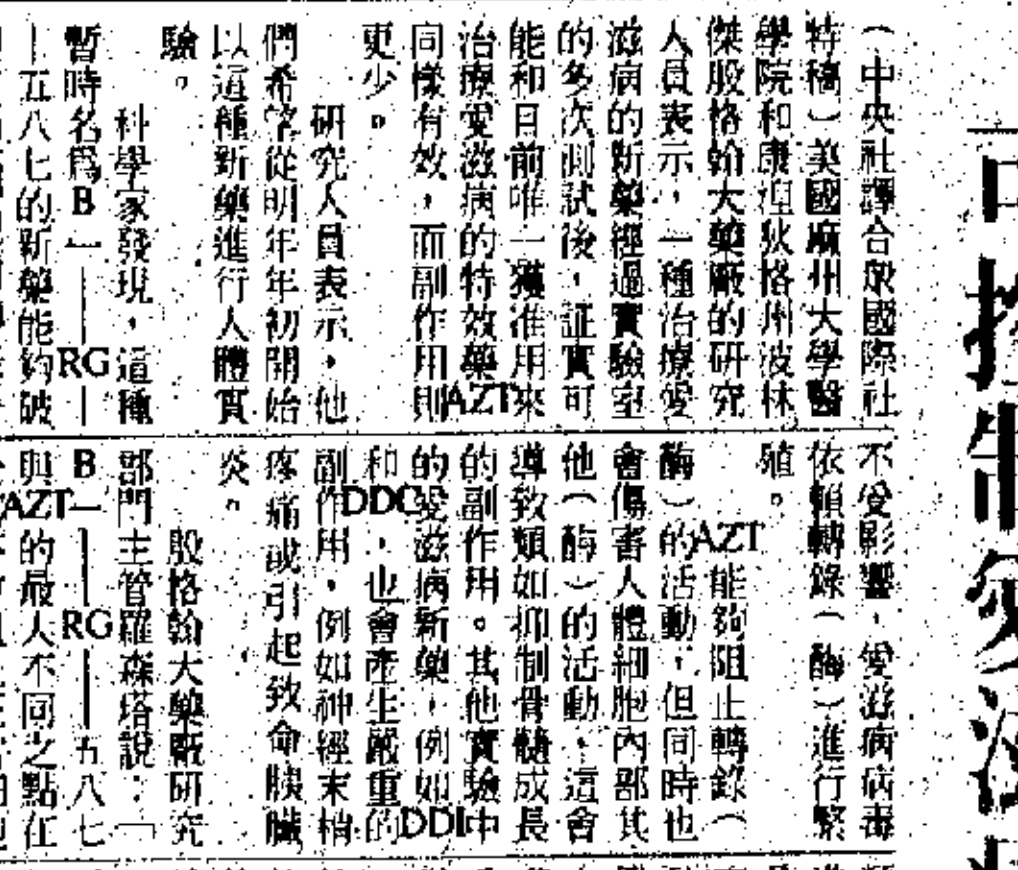 （中央社譯合眾國際社
特稿）美國麻州大學醫
學院和康涅狄格州波林
傑殷格翰大藥廠的研究
人員表示，一種治療愛
滋病的新藥經過實驗室
的多次測試後，証實可
能和日前唯一獲准用來
治療愛滋病的特效藥AZT
同樣有效，而副作用則
更少。
研究人員表示，他
們希望從明年年初開始
以這種新藥進行人體實
驗。
科學家發現，這種
暫時名為B一——RG—
—五八七的新藥能夠破
不受影響，愛滋病病毒
依賴轉錄（酶）進行繁
殖。
AZT能夠阻止轉錄（
酶）的活動，但同時也
會傷害人體細胞內部其
他（酶）的活動，這會
導致類如抑制骨髓成長
的副作用。其他實驗中
的愛滋病新藥，例如DDI
和DDC，也會產生嚴重的
副作用，例如神經末梢
疼痛或引起致命胰臟
炎。
殷格翰大藥廠研究
部門主管羅森塔說：「
B一——RG——五八七
與AZT的最大不同之點在